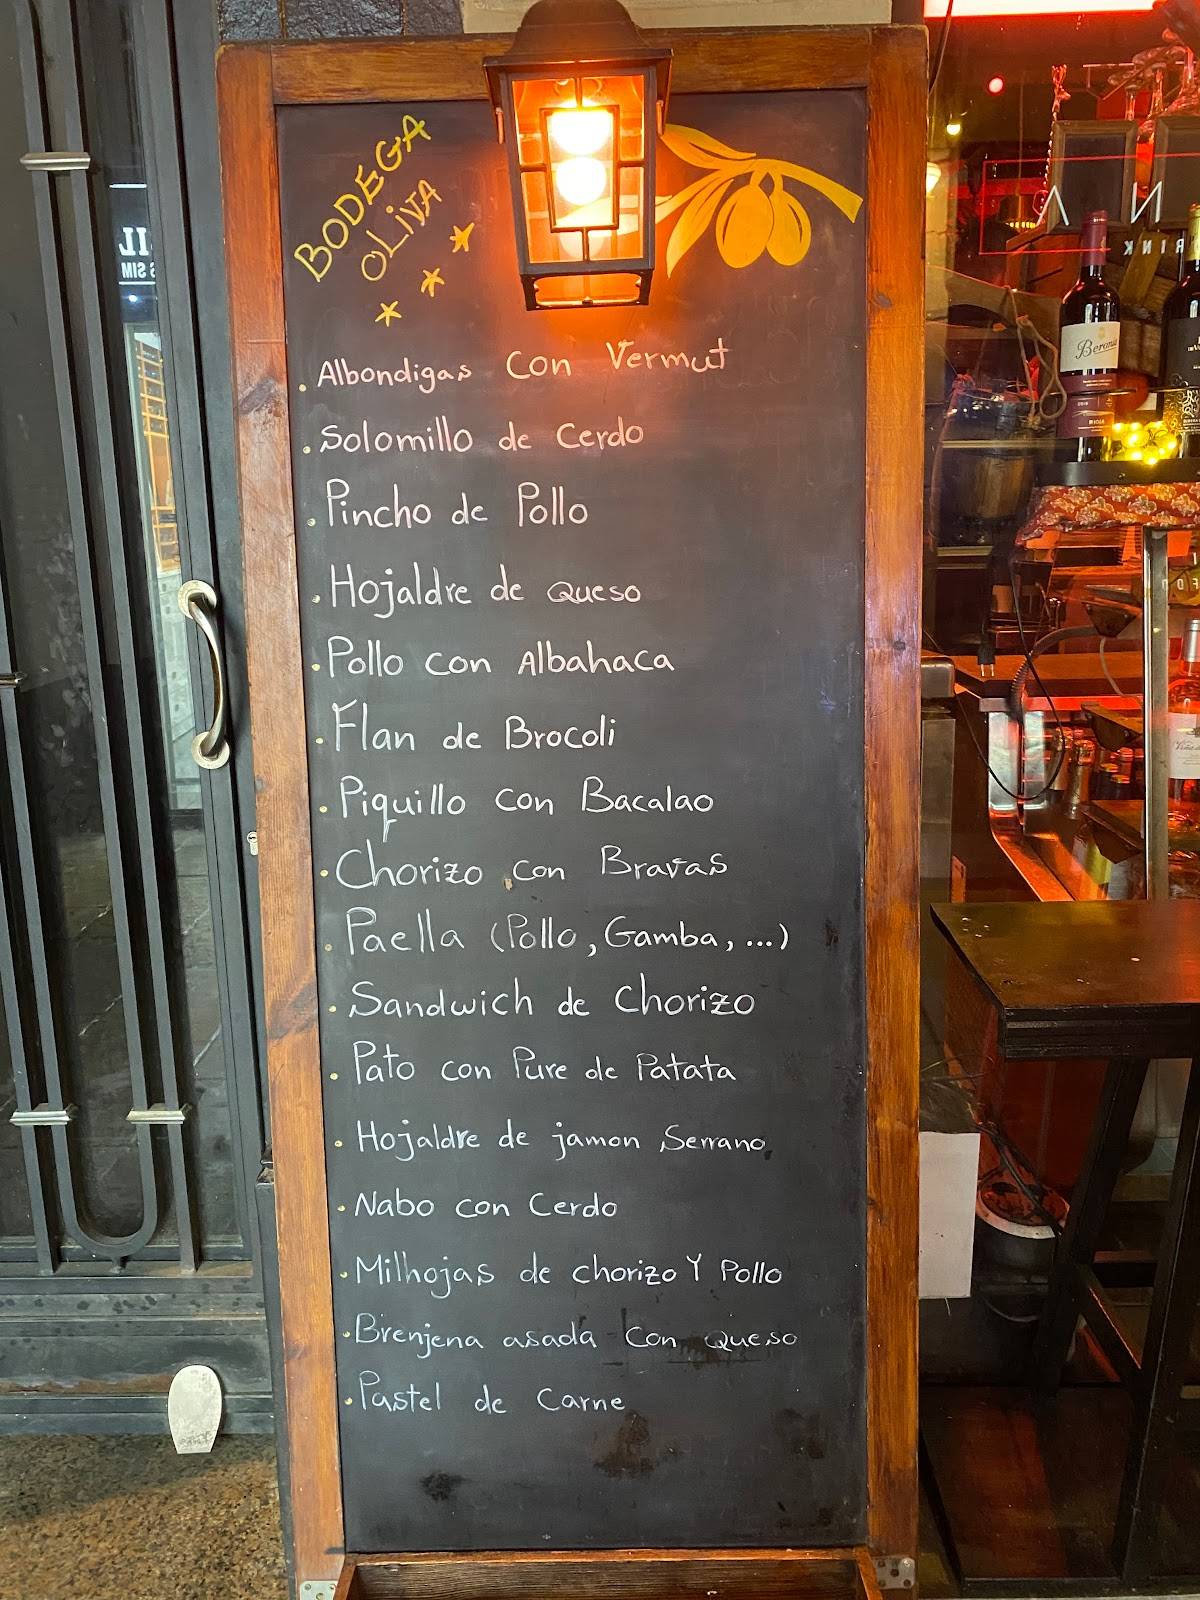 BODEGA
OLIVA
Albondigas con Vermut
Solomillo de Cerdo
Pincho de Pollo
Hojaldre de Queso
Pollo con Albahaca
Flan de Brocoli
Piquillo con Bacalao
Chorizo con Bravas
Paella (Pollo, Gamba, ...)
Sandwich de Chorizo
Pato con Pure de Patata
Hojaldre de jamon Serrano
Nabo con Cerdo
Milhojas de chorizo Y Pollo
Brenjena asada con Queso
Pastel de Carne
Beronia
RIOJA